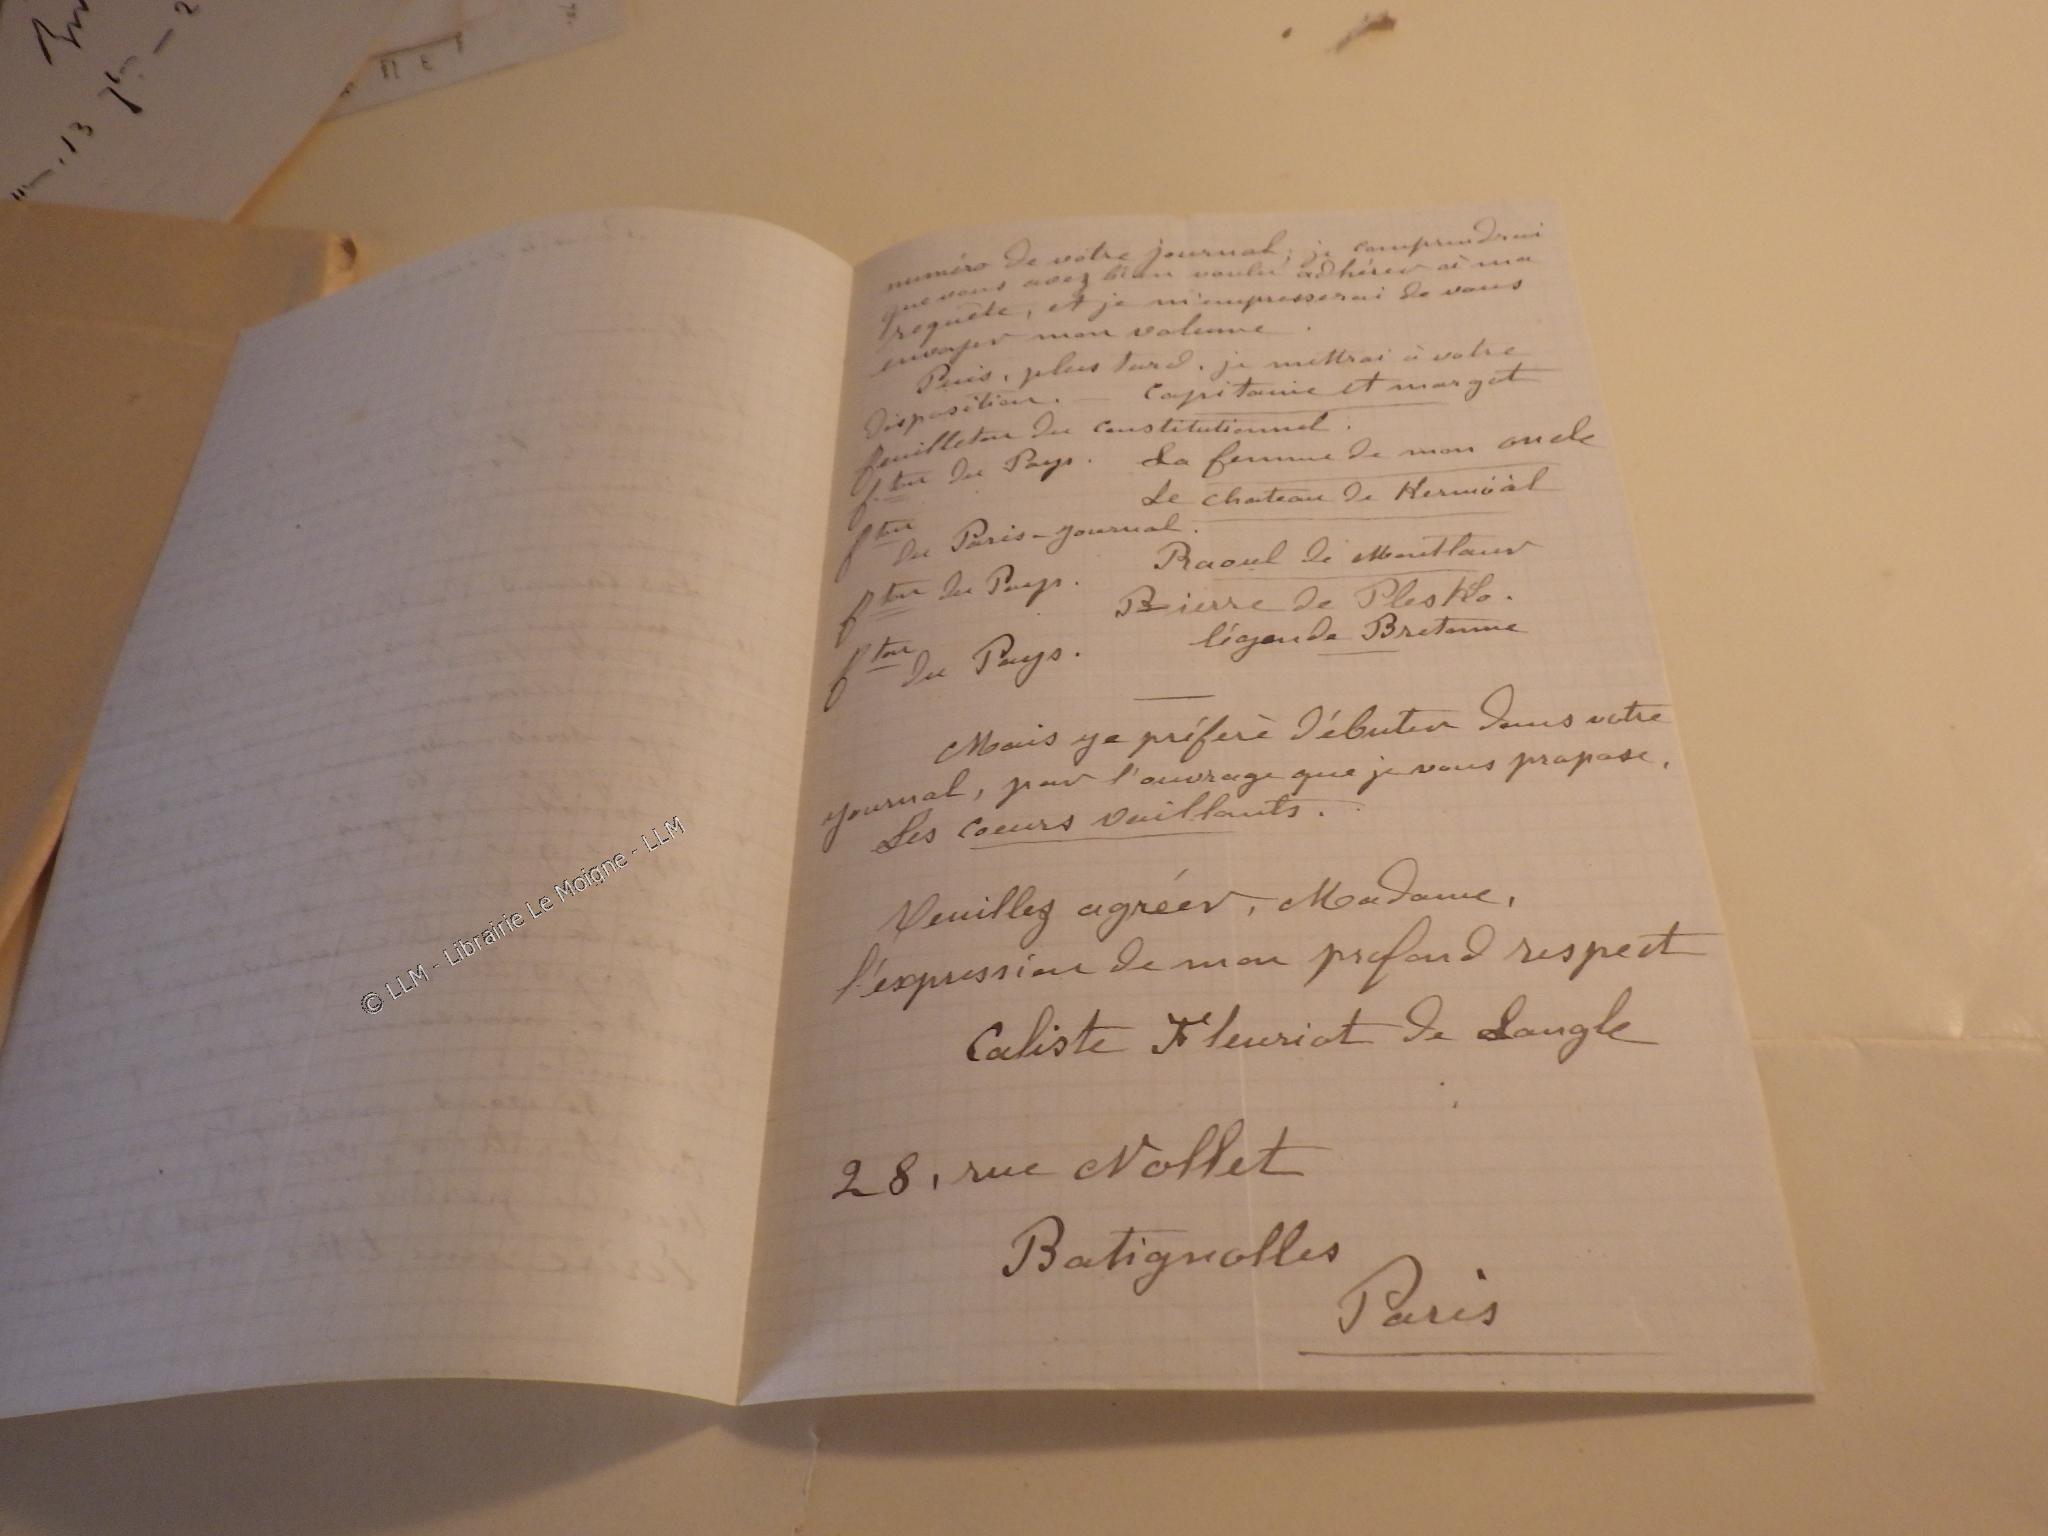 13
numéro de votre journal, je comprendrai
que vous avez bien voulu adhérer à ma
requête, et je m'empresserai de vous
envoyer mon volume.
Puis, plus tard, je mettrai à votre
disposition. — Capitaine et margot
feuilleton du constitutionnel.
f.ton du Pays. La femme de mon oncle
Le chateau de Kermoàl
fton du Paris-Journal.
fton du Pays. Raoul de Montlaur
Pierre de PlesKo.
légende Bretonne
fton du Pays.
Mais je préfère débuter dans votre
journal, par l'ouvrage que je vous propose,
Les coeurs vaillants.
Veuillez agréer, Madame,
l'expression de mon profond respect
Caliste Fleuriot de Langle
28, rue Nollet
Batignolles
Paris
© LLM - Librairie Le Moigne - LLM